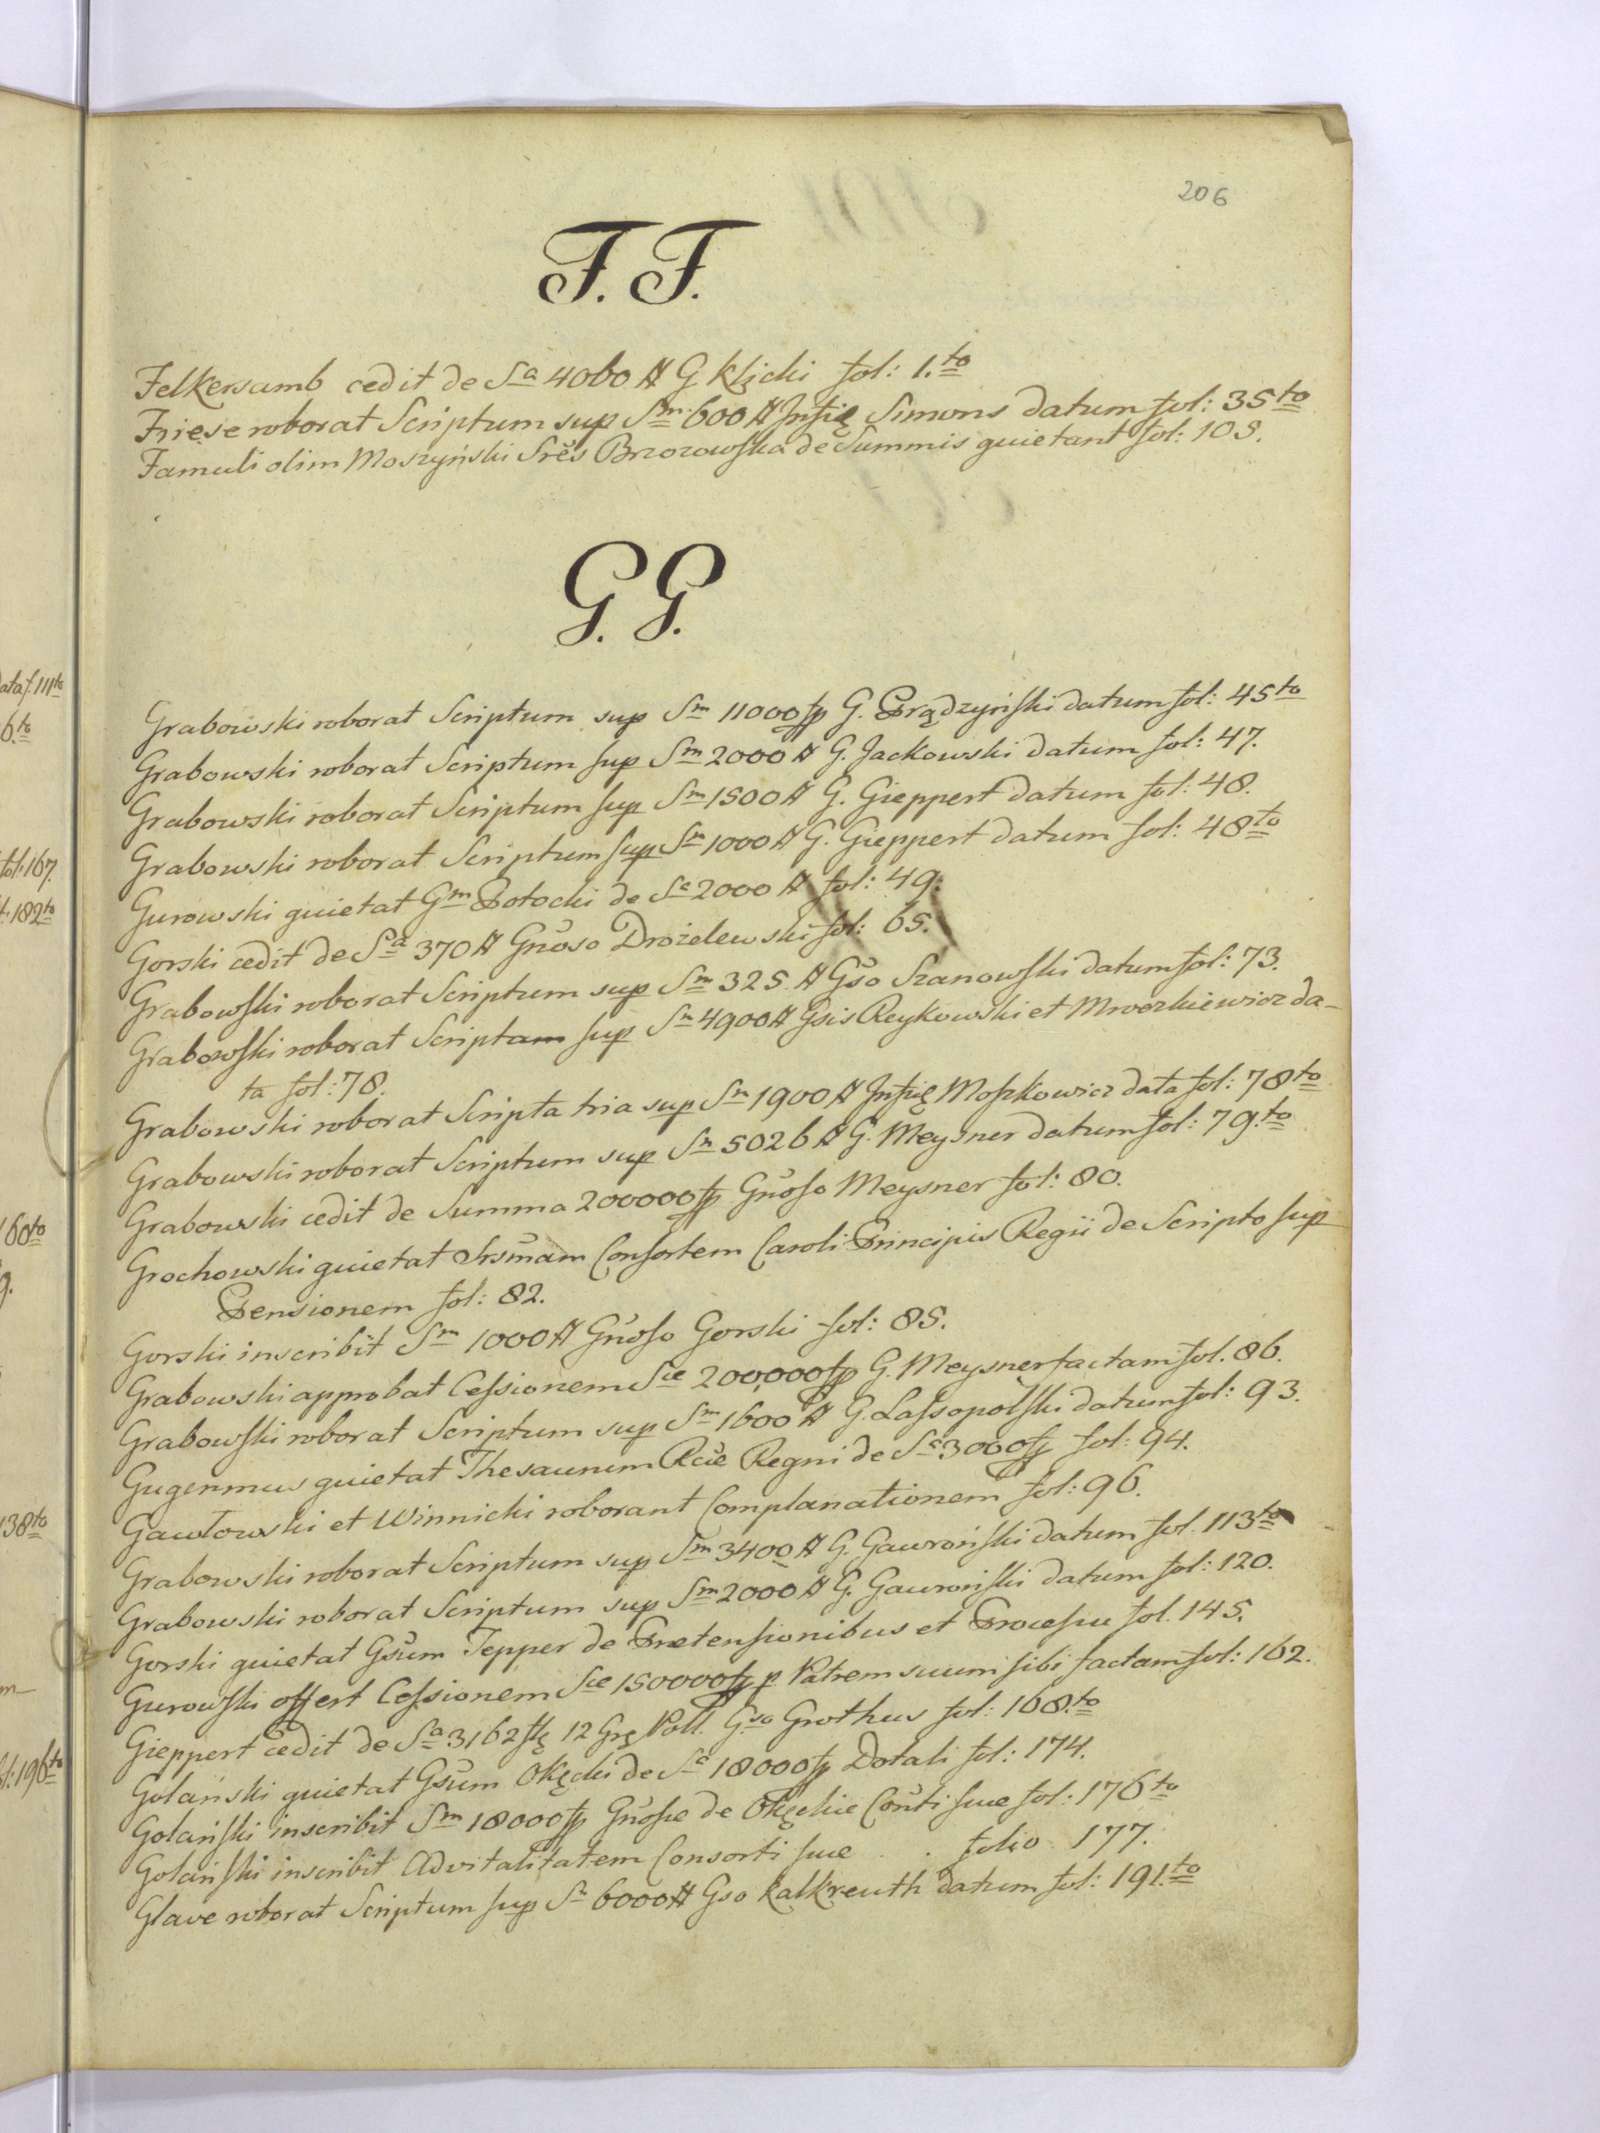 206
F. F.
Felkersamb cedit de Sa 4060 # G Klicki fol: 1.to
Friese roborat Scriptum sup Sm 600 # Infię Simons datum fol: 35to
Famuli olim Moszyński Srês Brzozowska de Summis quietant fol: 105.
G. G.
Grabowski roborat Scriptum sup Sm 11000 fp G. Prądzyński datum fol: 45to
Grabowski roborat Scriptum sup Sm 2000 # G. Jackowski datum fol: 47.
Grabowski roborat Scriptum sup Sm 1500 # G. Gieppert datum fol: 48.
Grabowski roborat Scriptum sup Sm 1000 # G. Gieppert datum fol: 48to
Gurowski quietat Gm Potocki de Sa 2000 # fol: 49.
Gorski cedit de Sa 370 # Gnoso Drożelewski fol: 65.
Grabowski roborat Scriptum sup Sm 325 # Gso Szanowski datum fol: 73.
Grabowski roborat Scriptam sup Sm 4900 # Gsis Reykowski et Mroczkiewicz da-
ta fol: 78.
Grabowski roborat Scripta tria sup Sm 1900 # Infię Moszkowicz data fol: 78to
Grabowski roborat Scriptum sup Sm 5026 # G. Meysner datum fol: 79.to
Grabowski cedit de Summa 200000 fp Gnoso Meysner fol: 80.
Grochowski quietat Srsmam Consortem Caroli Principis Regii de Scripto sup
Pensionem fol: 82.
Gorski inscribit Sm 1000 # Gnoso Gorski fol: 85.
Grabowski approbat Cessionem Sæ 200,000 fp G. Meysner factam fol. 86.
Grabowski roborat Scriptum sup Sm 1600 # G. Lassopolski datum fol: 93.
Gugenmus quietat Thesaurum Rcæ Regni de Sa 3000 fp fol: 94.
Gawłowski et Winnicki roborant Complanationem fol: 96.
Grabowski roborat Scriptum sup Sm 3400 # G. Gawroński datum fol. 113to
Grabowski roborat Scriptum sup Sm 2000 # G. Gawroński datum fol: 120.
Gorski quietat Gsum Tepper de Prætensionibus et Processu fol. 145.
Gurowski offert Cessionem Sæ 150000 fp p Patrem suum sibi factam fol: 162.
Gieppert cedit de Sa 3162 flę 12 Grę Poll. Gso Grothus fol: 168.to
Golański quietat Gsum Okęcki de Sa 18000 fp Dotali fol: 174.
Golański inscribit Sm 18000 fp Gnosæ de Okęckie Conti suæ fol: 176to
Golański inscribit Advitalitatem Consorti suæ . . folio 177.
Glave roborat Scriptum sup Sm 6000 # Gso Kalkreuth datum fol: 191.to
ata f. 111to
6.to
fol: 167.
182to
160to
9.
138to
m
196to